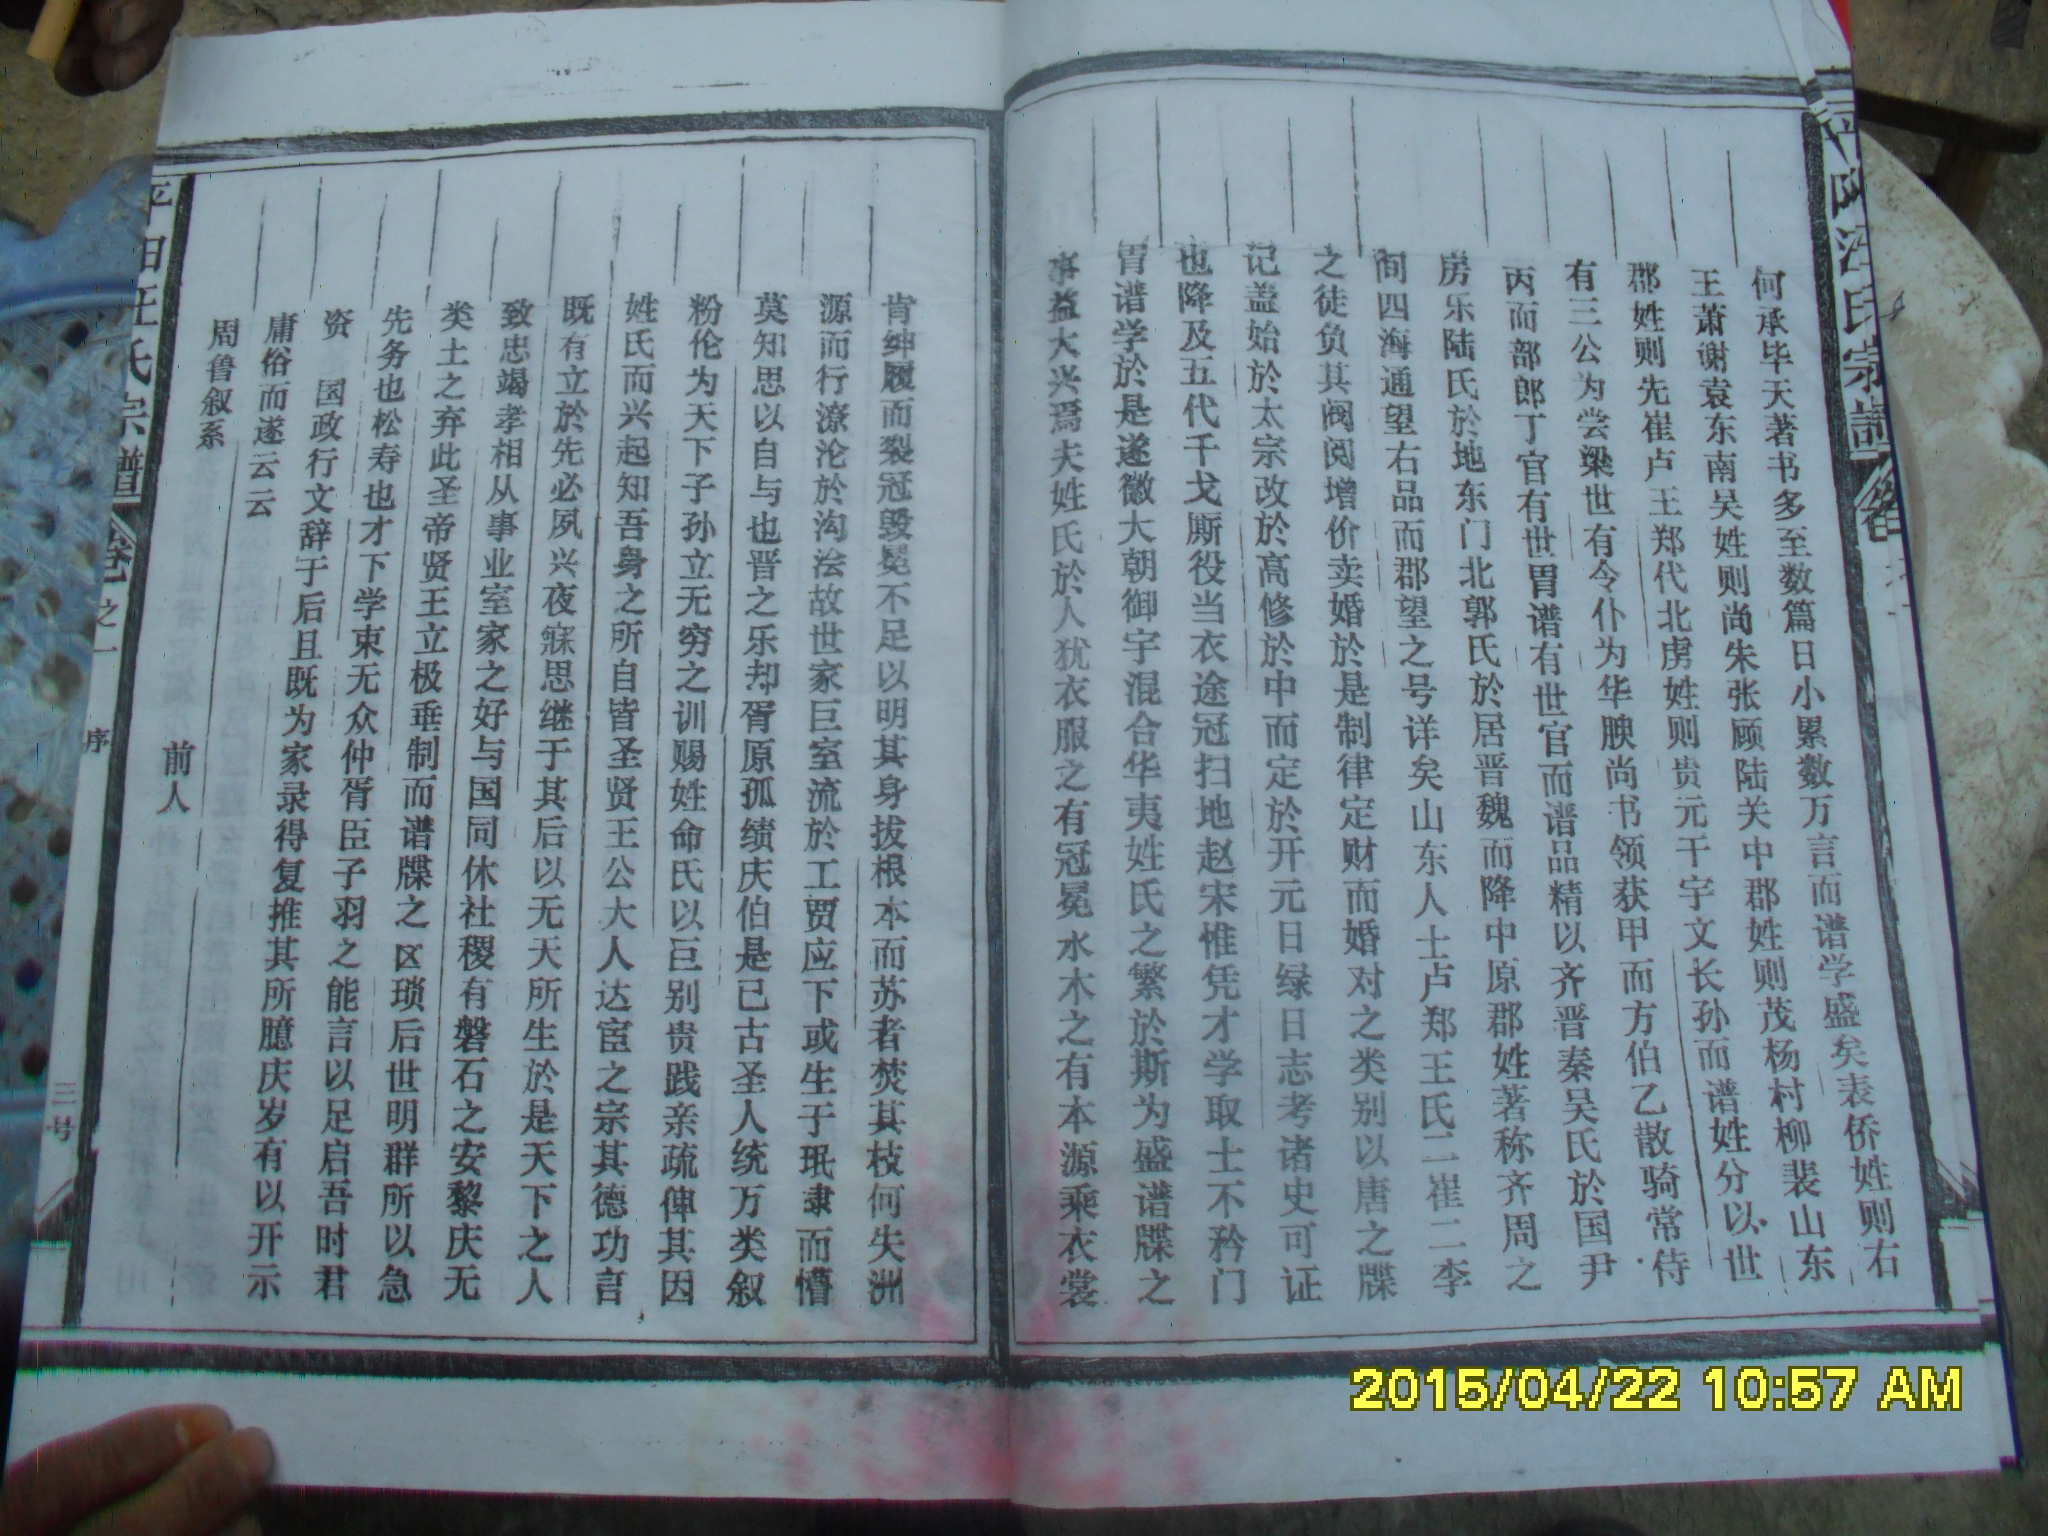 何承毕天著书多至数篇日小累数万言而谱学盛矣表侨姓则右
王萧谢袁东南吴姓则尚朱张顾陆关中郡姓则茂杨村柳裴山东
郡姓则先崔卢王郑代北虏姓则贵元干宇文长孙而谱姓分以世
有三公为尝梁世有令仆为华腴尚书领获甲而方伯乙散骑常侍
丙而部郎丁官有世胄谱有世官而谱品精以齐晋秦吴氏於国尹
房乐陆氏於地东门北郭氏於居晋魏而降中原郡姓著称齐周之
间四海通望右品而郡望之号详矣山东人士卢郑王氏二崔二李
之徒负其阀阅增价卖婚於是制律定财而婚对之类别以唐之牒
记盖始於太宗改於高修於中而定於开元日绿日志考诸史可证
也降及五代千戈厮役当衣途冠扫地赵宋惟凭才学取士不矜门
胄谱学於是遂徽大朝御宇混合华夷姓氏之繁於斯为盛谱牒之
事益大兴焉夫姓氏於人犹衣服之有冠冕水木之有本源乘衣裳
肯绅履而裂冠毁冕不足以明其身拔根本而苏者焚其枝何失洲
源而行潦沦於沟浍故世家巨室流於工贾应下或生于珉隶而懵
莫知思以自与也晋之乐却胥原孤绩庆伯是已古圣人统万类叙
粉伦为天下子孙立无穷之训赐姓命氏以巨别贵践亲疏俾其因
姓氏而兴起知吾身之所自皆圣贤王公大人达宦之宗其德功言
既有立於先必夙兴夜寐思继于其后以无天所生於是天下之人
致忠竭孝相从事业室家之好与国同休社稷有磐石之安黎庆无
类土之弃此圣帝贤王立极垂制而谱牒之区琐后世明群所以急
先务也松寿也才下学束无众仲胥臣子羽之能言以足启吾时君
资 国政行文辞于后且既为家录得复推其所臆庆岁有以开示
庸俗而遂云云
周鲁叙系
前人
平阳汪氏宗谱 卷之一 序 三号